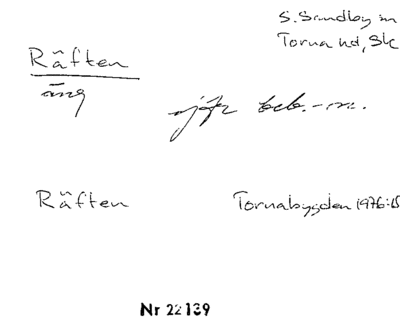 S. Sandby sn
Torna hd, Sk
Räften
äng
beb.-n.
Räften
Tornabygden 1976:15
Nr 22139